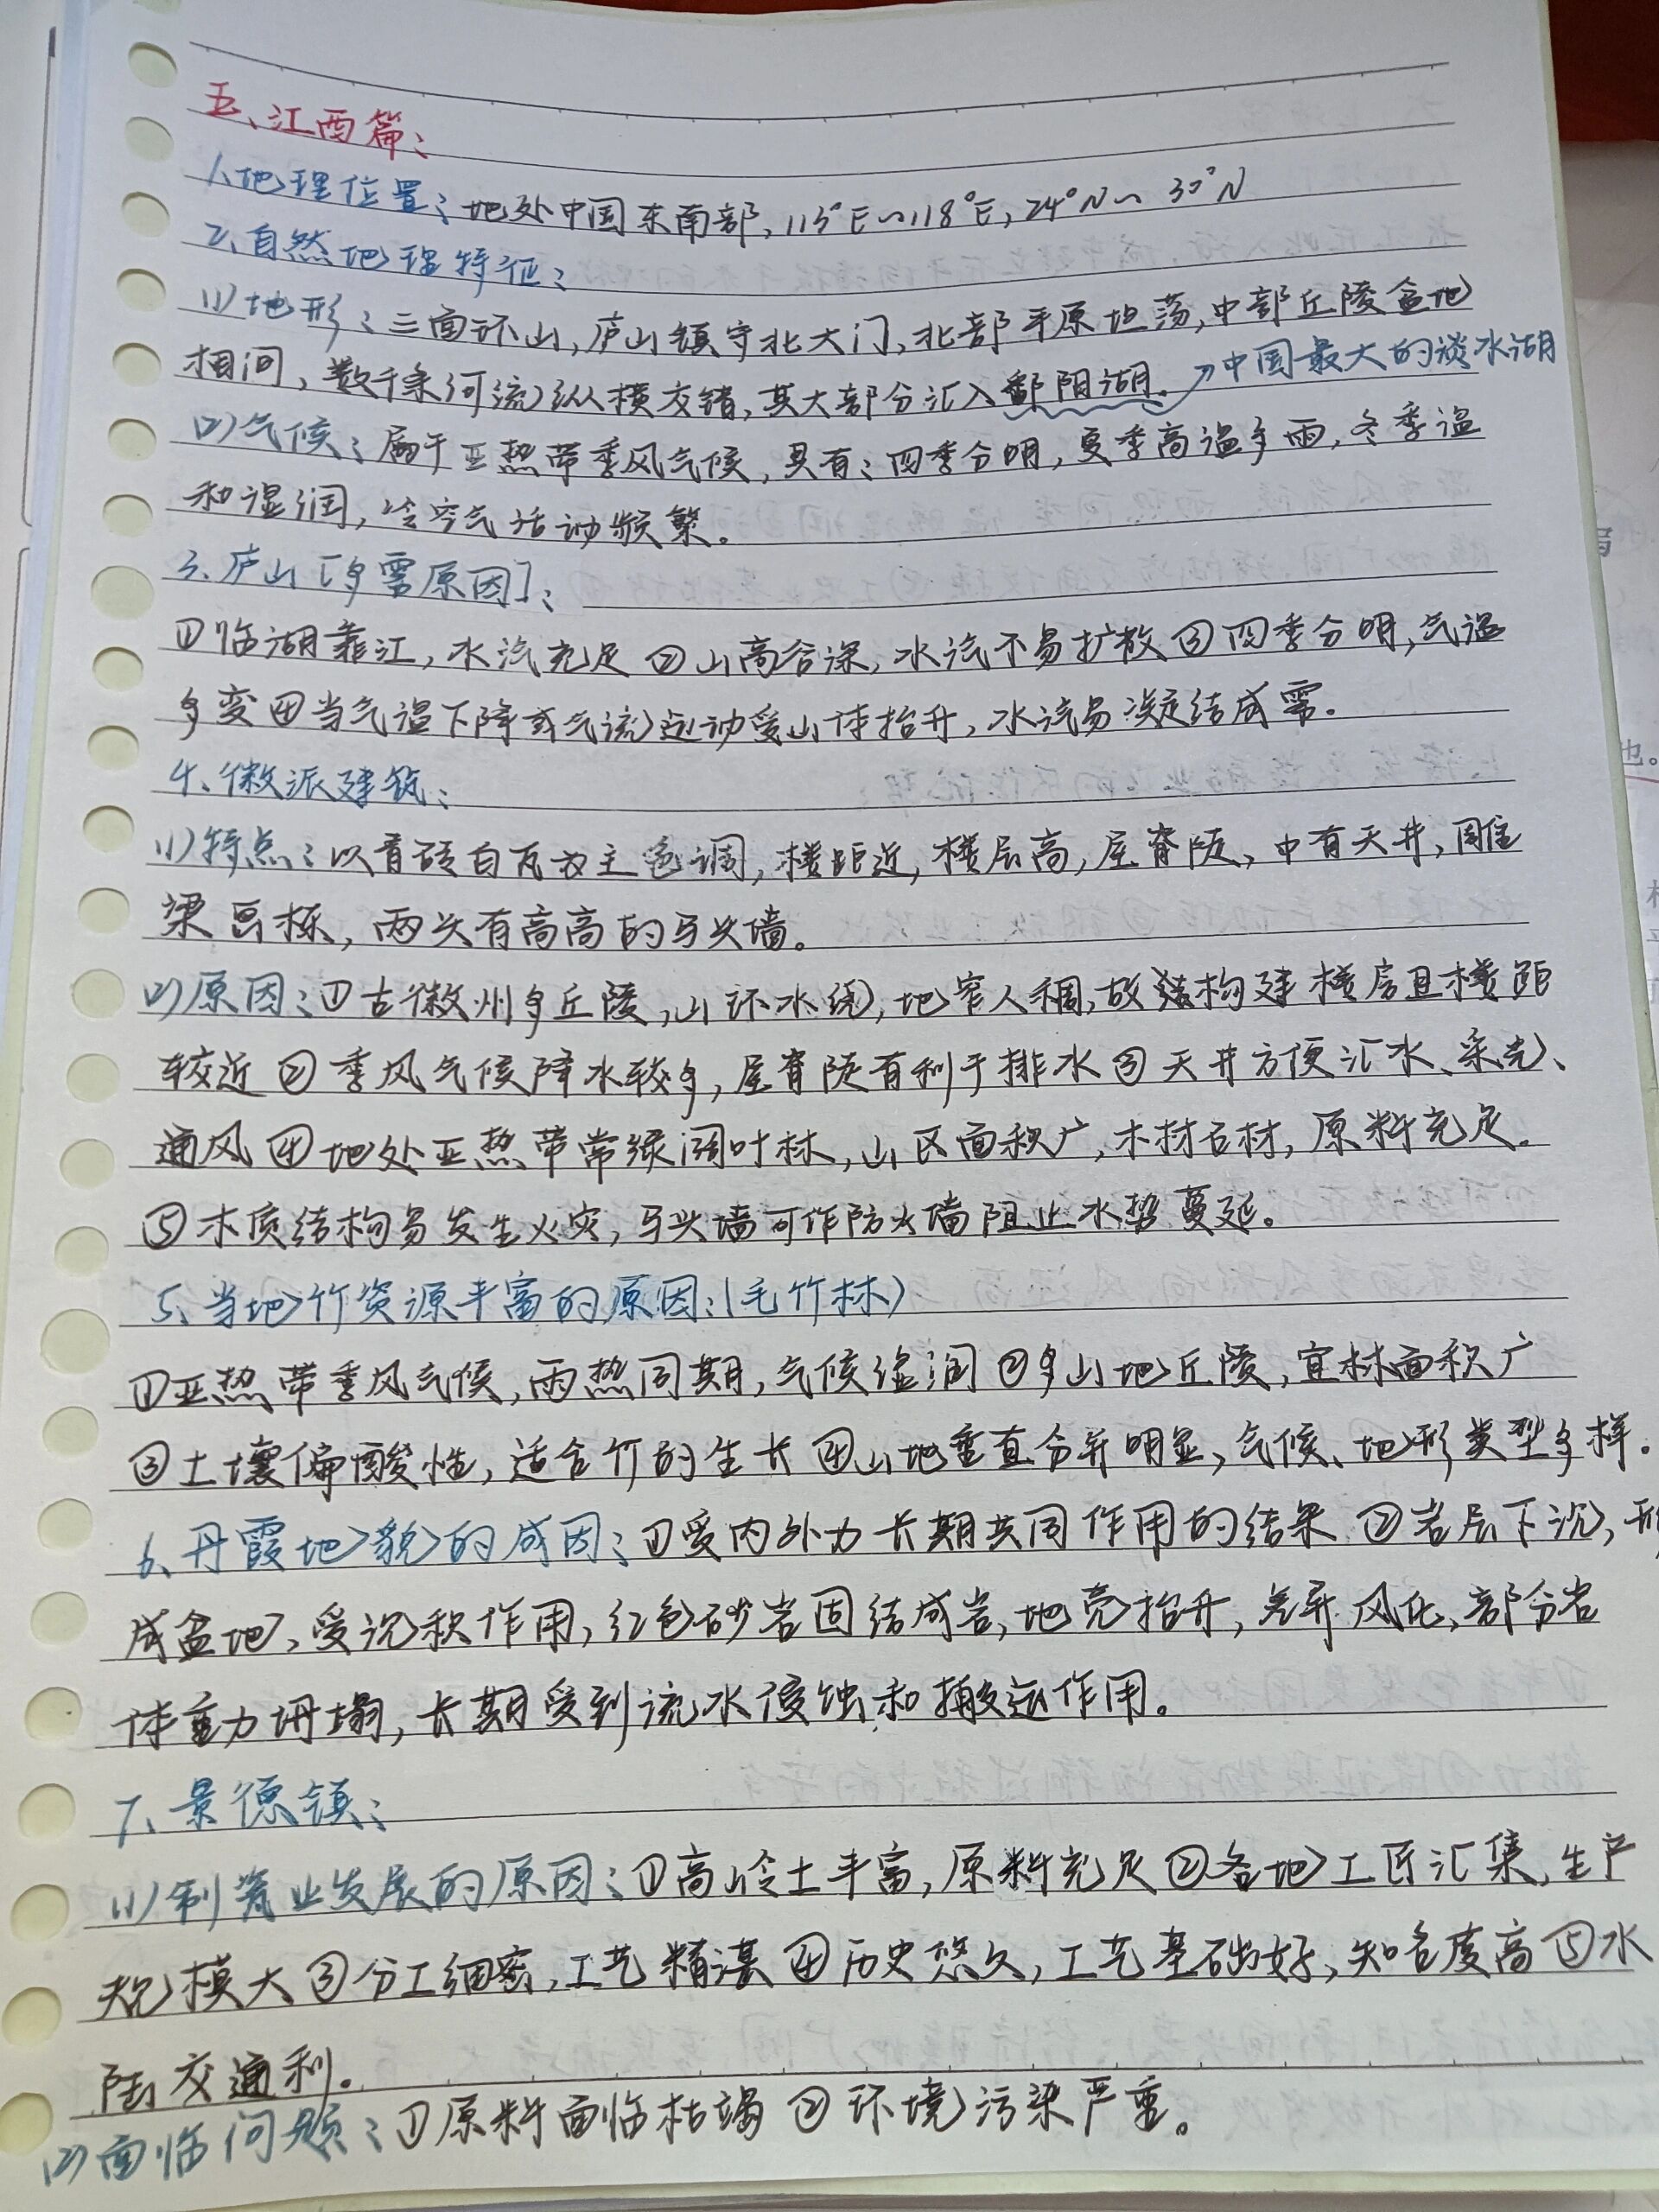 五、江西篇:
1、地理位置:地处中国东南部,113°E~118°E,24°N~30°N
2、自然地理特征:
(1)地形:三面环山,庐山镇守北大门,北部平原坦荡,中部丘陵盆地
相间,数千条河流纵横交错,其大部分汇入鄱阳湖。→中国最大的淡水湖
(2)气候:属于亚热带季风气候,具有:四季分明,夏季高温多雨,冬季温
和湿润,冷空气活动频繁。
3、庐山[多雾原因]:
①临湖靠江,水汽充足②山高谷深,水汽不易扩散③四季分明,气温
多变④当气温下降或气流运动受山体抬升,水汽易凝结成雾。
4、徽派建筑:
(1)特点:以青砖白瓦为主色调,楼距近,楼层高,屋脊陡,中有天井,雕
梁画栋,两头有高高的马头墙。
(2)原因:①古徽州多丘陵,山环水绕,地窄人稠,故结构建楼房且楼距
较近②季风气候降水较多,屋脊陡有利于排水③天井方便汇水、采光、
通风④地处亚热带常绿阔叶林,山区面积广,木材石材,原料充足。
⑤木质结构易发生火灾,马头墙可作防火墙阻止火势蔓延。
5、当地竹资源丰富的原因:(毛竹林)
①亚热带季风气候,雨热同期,气候湿润②多山地丘陵,宜林面积广
③土壤偏酸性,适合竹的生长④山地垂直分异明显,气候、地形类型多样。
6、丹霞地貌的成因:①受内外力长期共同作用的结果②岩层下沉,形
成盆地,受沉积作用,红色砂岩固结成岩,地壳抬升,差异风化,部分岩
体重力坍塌,长期受到流水侵蚀和搬运作用。
7、景德镇:
(1)制瓷业发展的原因:①高岭土丰富,原料充足②各地工匠汇集,生产
规模大③分工细密,工艺精湛④历史悠久,工艺基础好,知名度高⑤水
陆交通利。
(2)面临问题:①原料面临枯竭②环境污染严重。